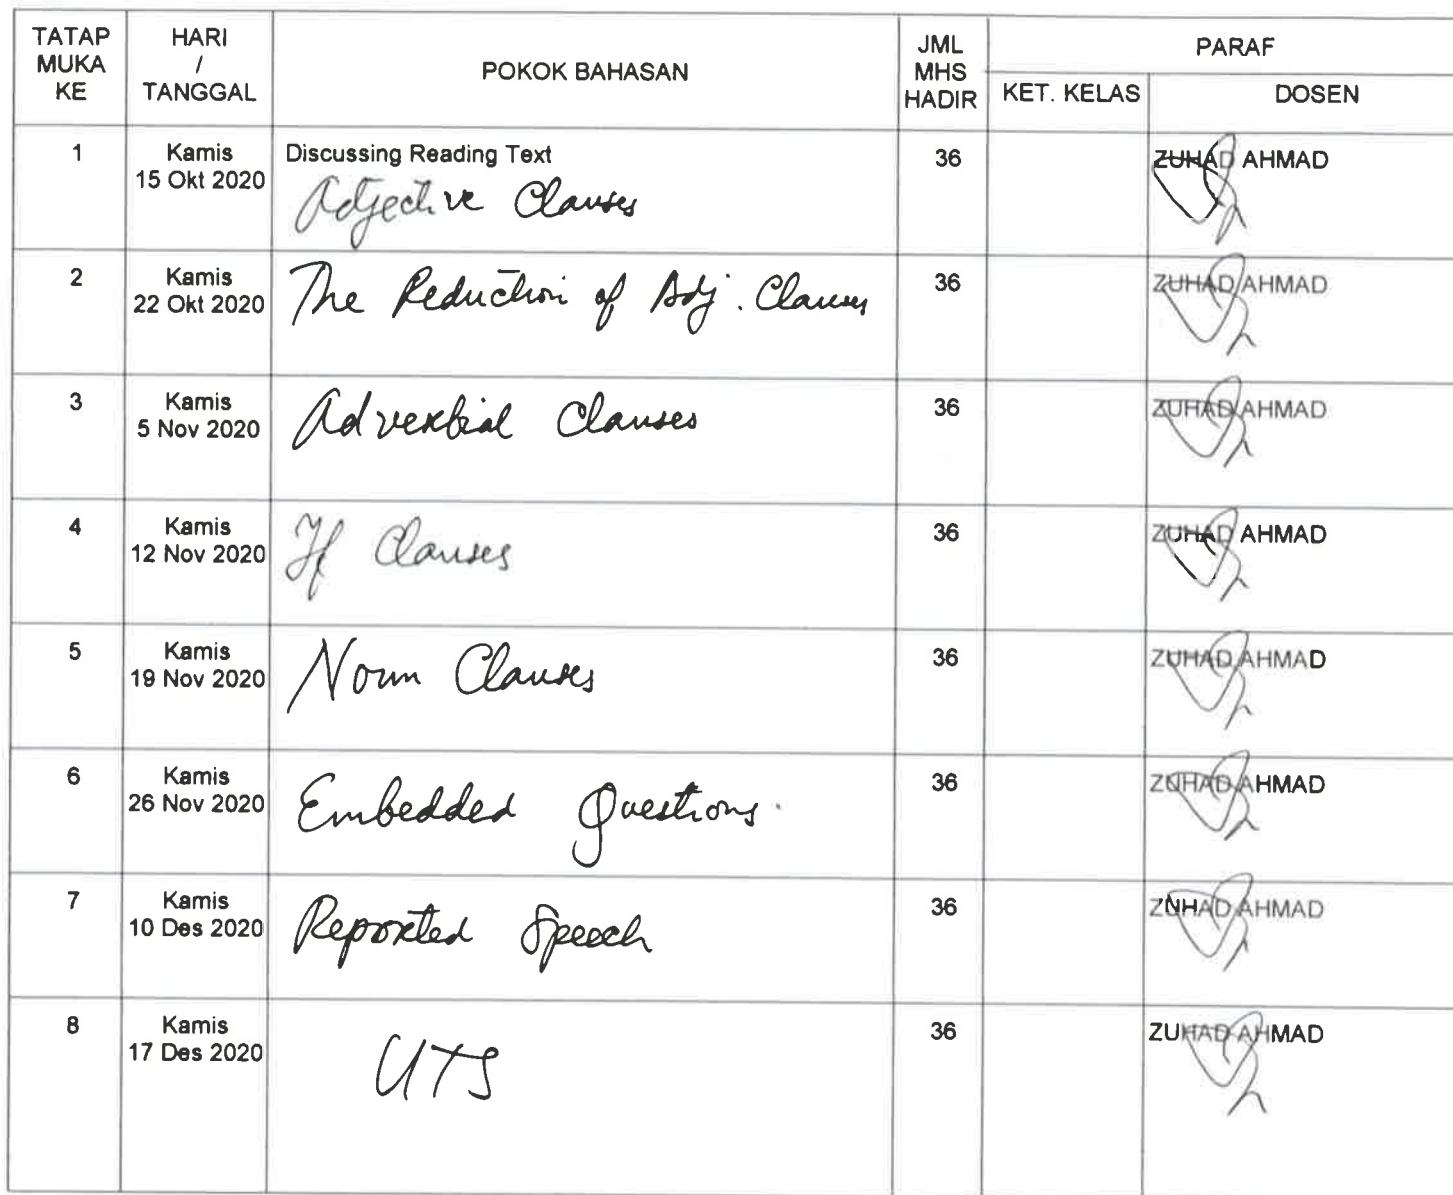 TATAP MUKA KE
HARI / TANGGAL
POKOK BAHASAN
JML MHS HADIR
PARAF
KET. KELAS
DOSEN
1
Kamis
15 Okt 2020
Discussing Reading Text
Adjective Clauses
36
ZUHAD AHMAD
2
Kamis
22 Okt 2020
The Reduction of Adj. Clauses
36
ZUHAD AHMAD
3
Kamis
5 Nov 2020
Adverbial Clauses
36
ZUHAD AHMAD
4
Kamis
12 Nov 2020
If Clauses
36
ZUHAD AHMAD
5
Kamis
19 Nov 2020
Noun Clauses
36
ZUHAD AHMAD
6
Kamis
26 Nov 2020
Embedded Questions.
36
ZUHAD AHMAD
7
Kamis
10 Des 2020
Reported Speech
36
ZUHAD AHMAD
8
Kamis
17 Des 2020
UTS
36
ZUHAD AHMAD